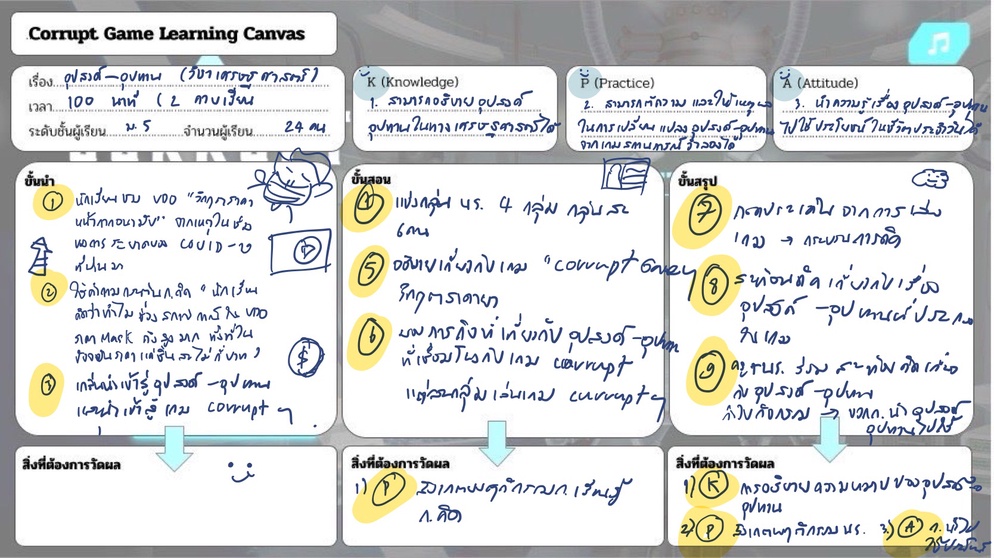 Corrupt Game Learning Canvas
เรื่อง อุปสงค์-อุปทาน (วิชาเศรษฐศาสตร์)
เวลา 100 นาที (2 คาบเรียน
ระดับชั้นผู้เรียน ม.5 จำนวนผู้เรียน 24 คน
K (Knowledge)
1. สามารถอธิบาย อุปสงค์
อุปทานในทางเศรษฐศาสตร์ได้
P (Practice)
2. สามารถตีความ และให้เหตุผล
ในการเปลี่ยนแปลง อุปสงค์-อุปทาน
จากเกมสถานการณ์จำลองได้
A (Attitude)
3. นำความรู้เรื่อง อุปสงค์-อุปทาน
ไปใช้ประโยชน์ในชีวิตประจำวันได้
ขั้นนำ
1 นักเรียนชม VDO "วิกฤตราคา
หน้ากากอนามัย" จากเหตุในช่วง
ระบาดของ COVID-19
ที่ผ่านมา
2 ใช้คำถามกระตุ้นก.คิด "นักเรียน
คิดว่าทำไม ช่วง ใน VDO
ราคา Mask ถึงสูงมาก ทั้งที่ใน
3 เกริ่นนำเข้าสู่ อุปสงค์-อุปทาน
และนำเข้าสู่ เกม corrupt
$
ขั้นสอน
4 แบ่งกลุ่ม นร. 4 กลุ่ม กลุ่มละ
6 คน
5 อธิบายเกี่ยวกับเกม "corrupt
วิกฤตราคายา
6 ภารกิจที่เกี่ยวกับ อุปสงค์-อุปทาน
ที่เชื่อมโยงกับเกม corrupt
แต่ละกลุ่มเล่นเกม corrupt
ขั้นสรุป
7 ถอดประเด็นจากการเล่น
เกม → กระบวนการคิด
8 สะท้อนคิดเกี่ยวกับเรื่อง
อุปสงค์-อุปทานที่ปรากฏ
ในเกม
9 ครู+นร. ร่วมสะท้อนคิดเกี่ยว
กับ อุปสงค์-อุปทาน
→ นำอุปสงค์
อุปทานไปใช้
สิ่งที่ต้องการวัดผล
สิ่งที่ต้องการวัดผล
1) P สังเกตพฤติกรรมก.เรียนรู้
ก.คิด
สิ่งที่ต้องการวัดผล
1) K การอธิบายความหมายของอุปสงค์
อุปทาน
2) P สังเกตพฤติกรรม นร. 3) A ก.นำไป
ใช้ประโยชน์